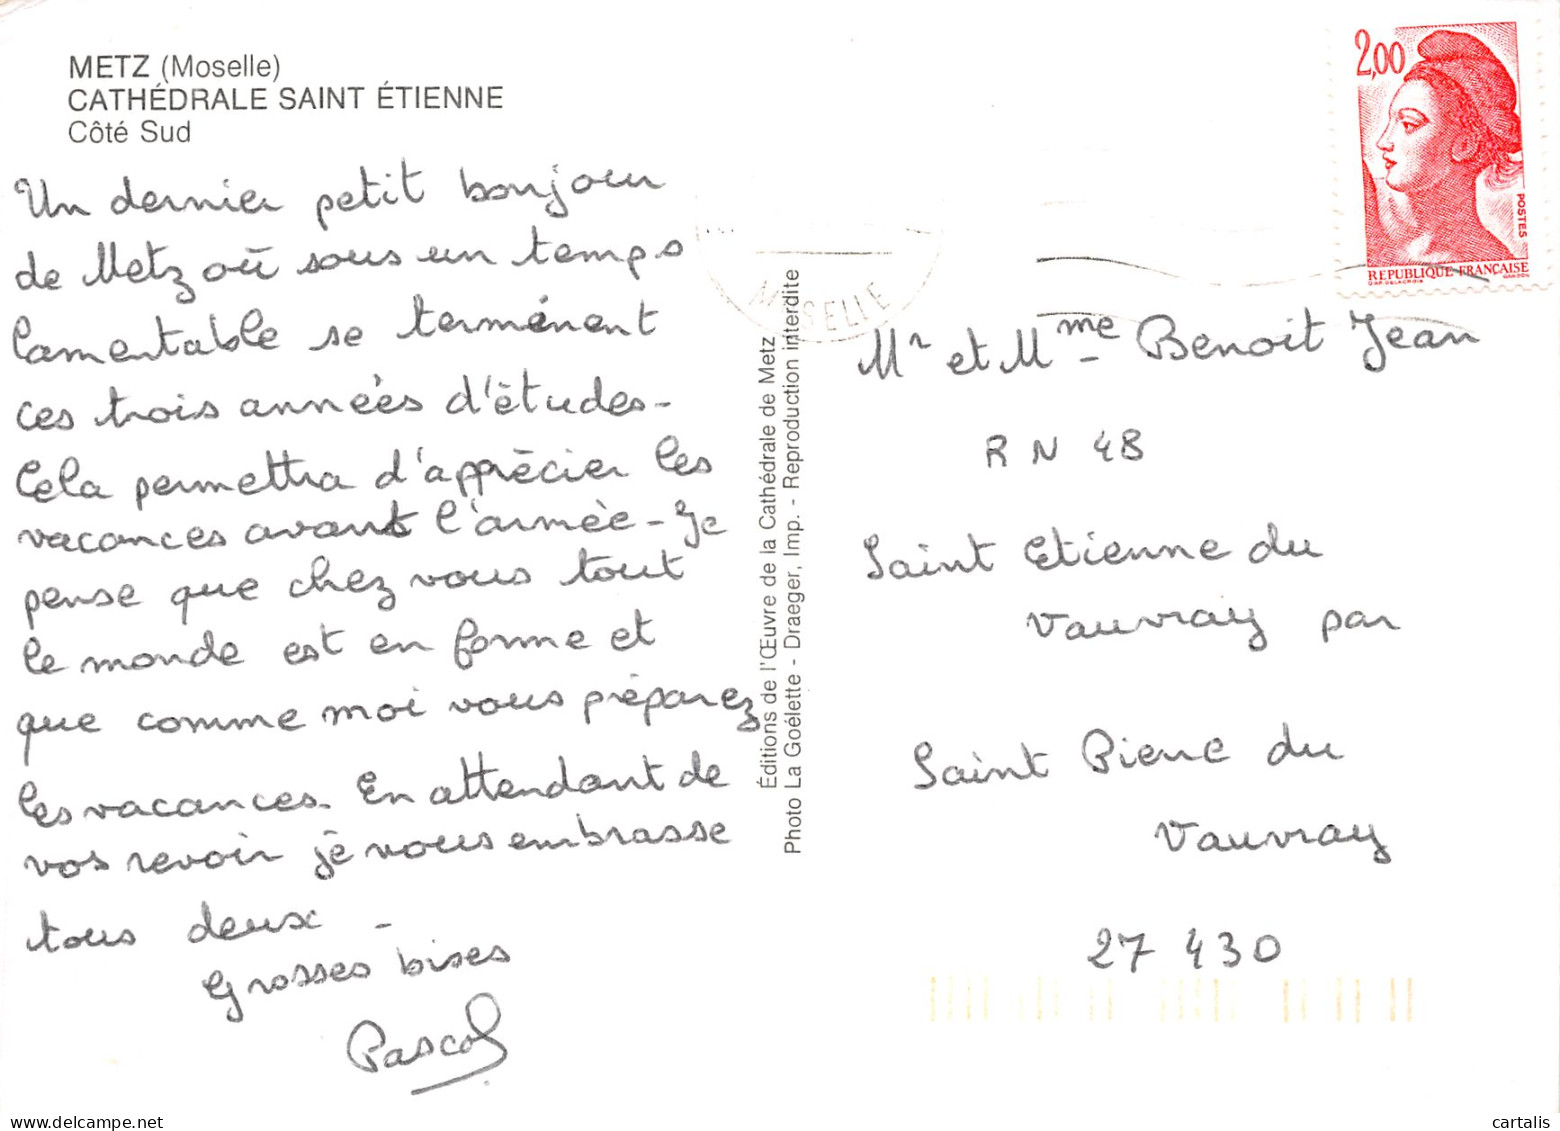 METZ (Moselle)
CATHÉDRALE SAINT ÉTIENNE
Côté Sud
Un dernier petit bonjour
de Metz où sous un temps
lamentable se terminent
ces trois années d'études-
Cela permettra d'apprécier les
vacances avant l'armée - Je
pense que chez vous tout
le monde est en forme et
que comme moi vous préparez
les vacances. En attendant de
vos revoir je vous embrasse
tous deux -
Grosses bises
Pascal
Éditions de l'Œuvre de la Cathédrale de Metz
Photo La Goélette - Draeger, Imp. - Reproduction interdite
MOSELLE
2,00
POSTES
REPUBLIQUE FRANÇAISE
D'AP. DELACROIX GANDON
Mr et Mme Benoit Jean
R N 4B
Saint Etienne du
Vauvray par
Saint Pierre du
Vauvray
27 430
www.delcampe.net
cartalis